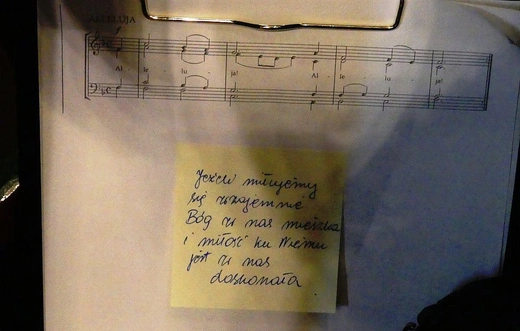 ALLELUJA
Al le lu ja! Al le lu ja!
Jeżeli miłujemy
się wzajemnie
Bóg w nas mieszka
i miłość ku Niemu
jest w nas
doskonała